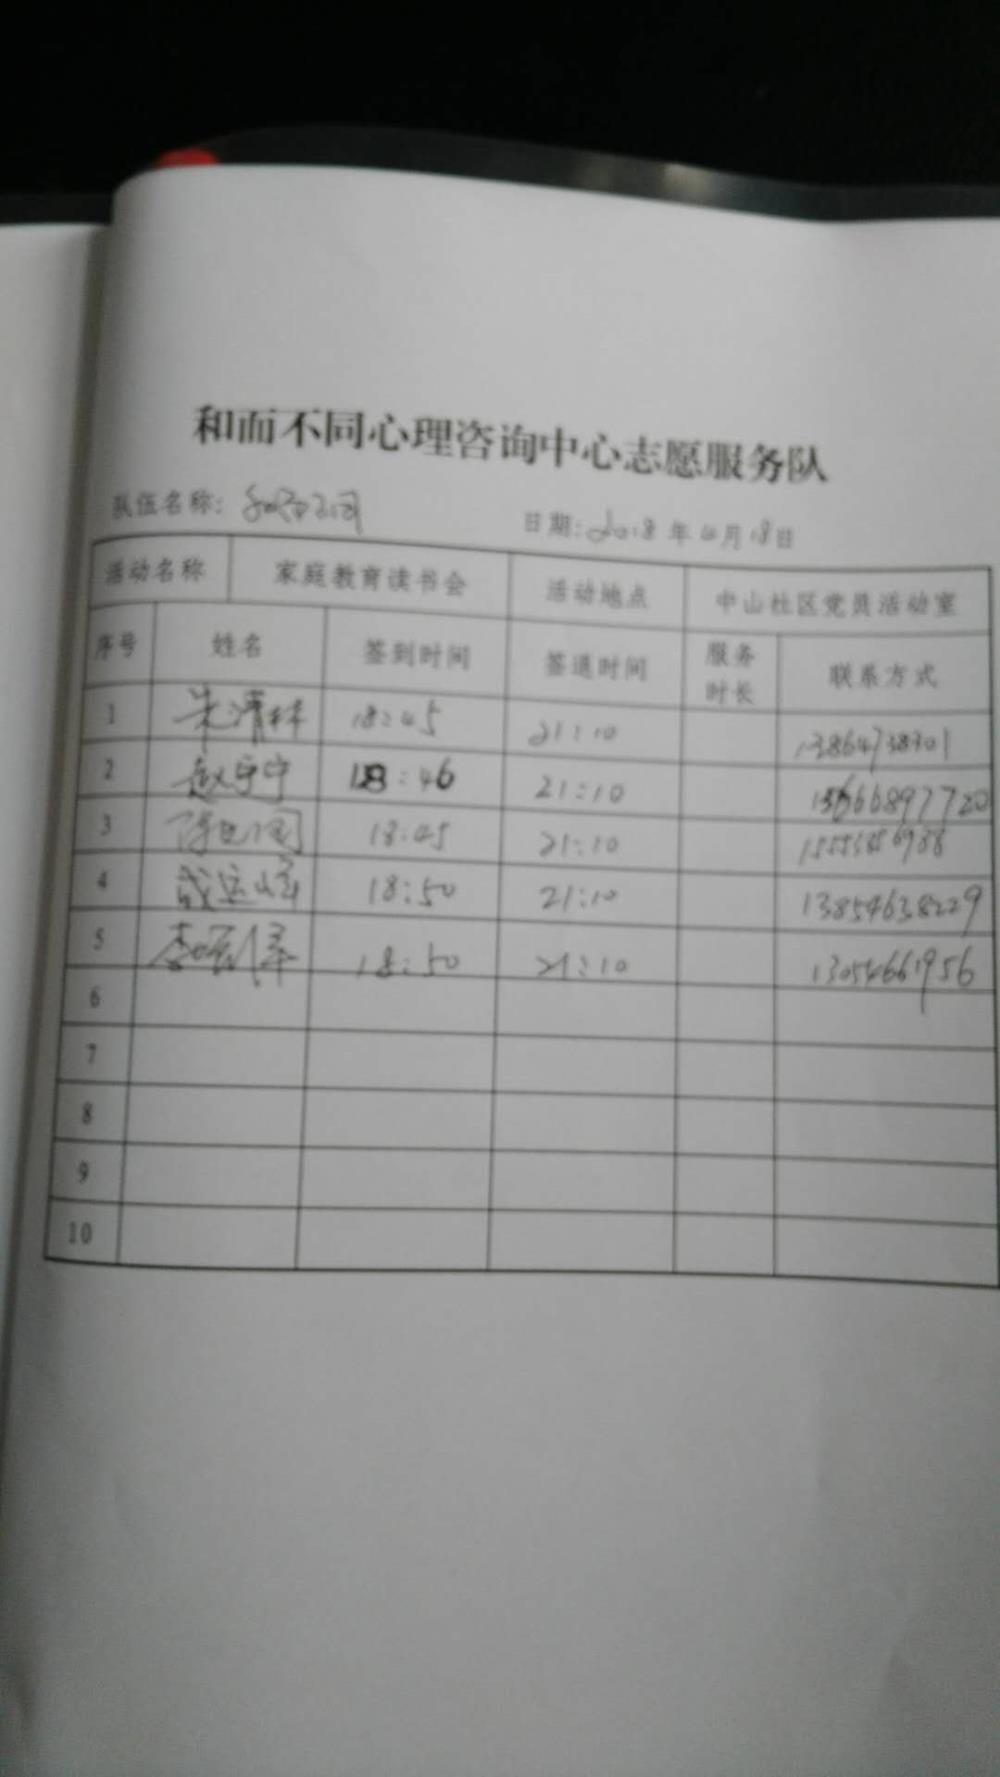 和而不同心理咨询中心志愿服务队
队伍名称: 和而不同 日期: 2018 年 4 月 18 日
活动名称 家庭教育读书会 活动地点 中山社区党员活动室
序号 姓名 签到时间 签退时间 服务时长 联系方式
1 朱清林 18:45 21:10 13864738301
2 赵宁宁 18:46 21:10
3 18:45 21:10
4 成运峰 18:50 21:10 13854638229
5 18:50 21:10 13054661956
6
7
8
9
10